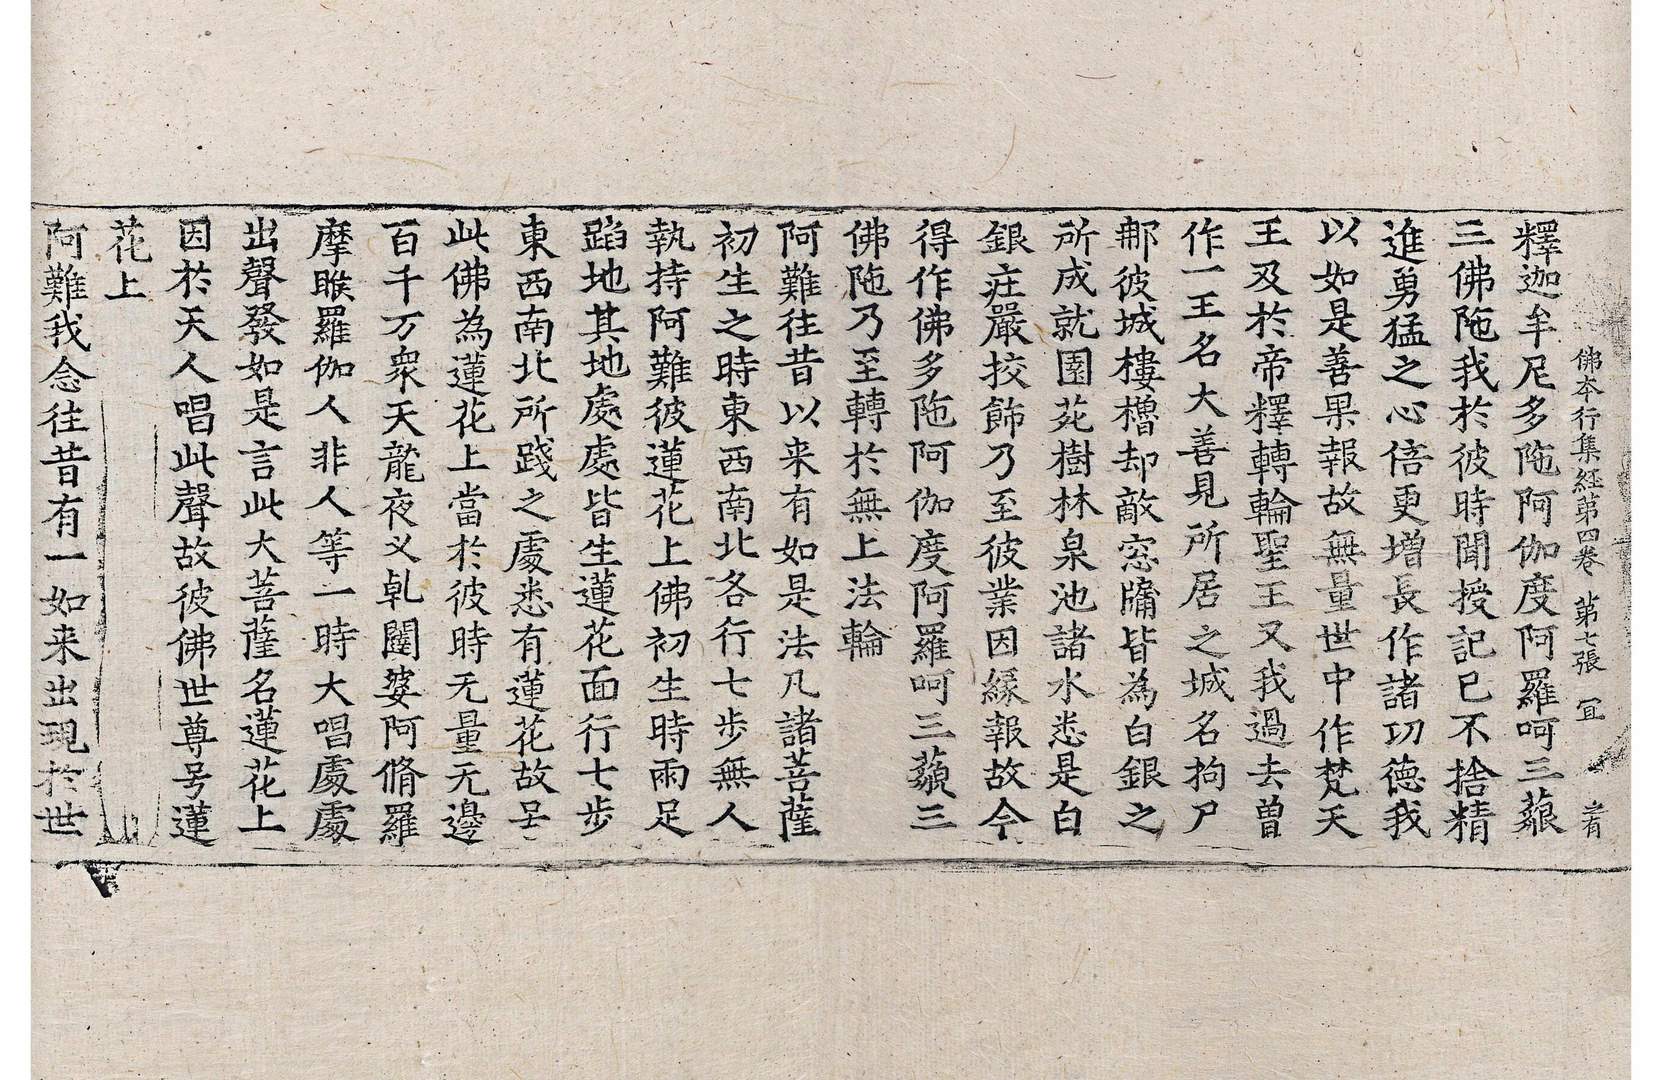 佛本行集経第四卷 第七張 冝
釋迦牟尼多陁阿伽度阿羅呵三藐
三佛陁我於彼時聞授記已不捨精
進勇猛之心倍更增長作諸功德我
以如是善果報故無量世中作梵天
王及於帝釋轉輪聖王又我過去曽
作一王名大善見所居之城名拘尸
那彼城樓櫓却敵窓牖皆為白銀之
所成就園苑樹林泉池諸水悉是白
銀庄嚴挍飾乃至彼業因緣報故今
得作佛多陁阿伽度阿羅呵三藐三
佛陁乃至轉於無上法輪
阿難往昔以来有如是法凡諸菩薩
初生之時東西南北各行七步無人
執持阿難彼蓮花上佛初生時兩足
蹈地其地處處皆生蓮花面行七步
東西南北所踐之處悉有蓮花故号
此佛為蓮花上當於彼時无量无邊
百千万衆天龍夜叉乹闥婆阿脩羅
摩睺羅伽人非人等一時大唱處處
出聲發如是言此大菩薩名蓮花上
因於天人唱此聲故彼佛世尊号蓮
花上
阿難我念往昔有一如来出現於世